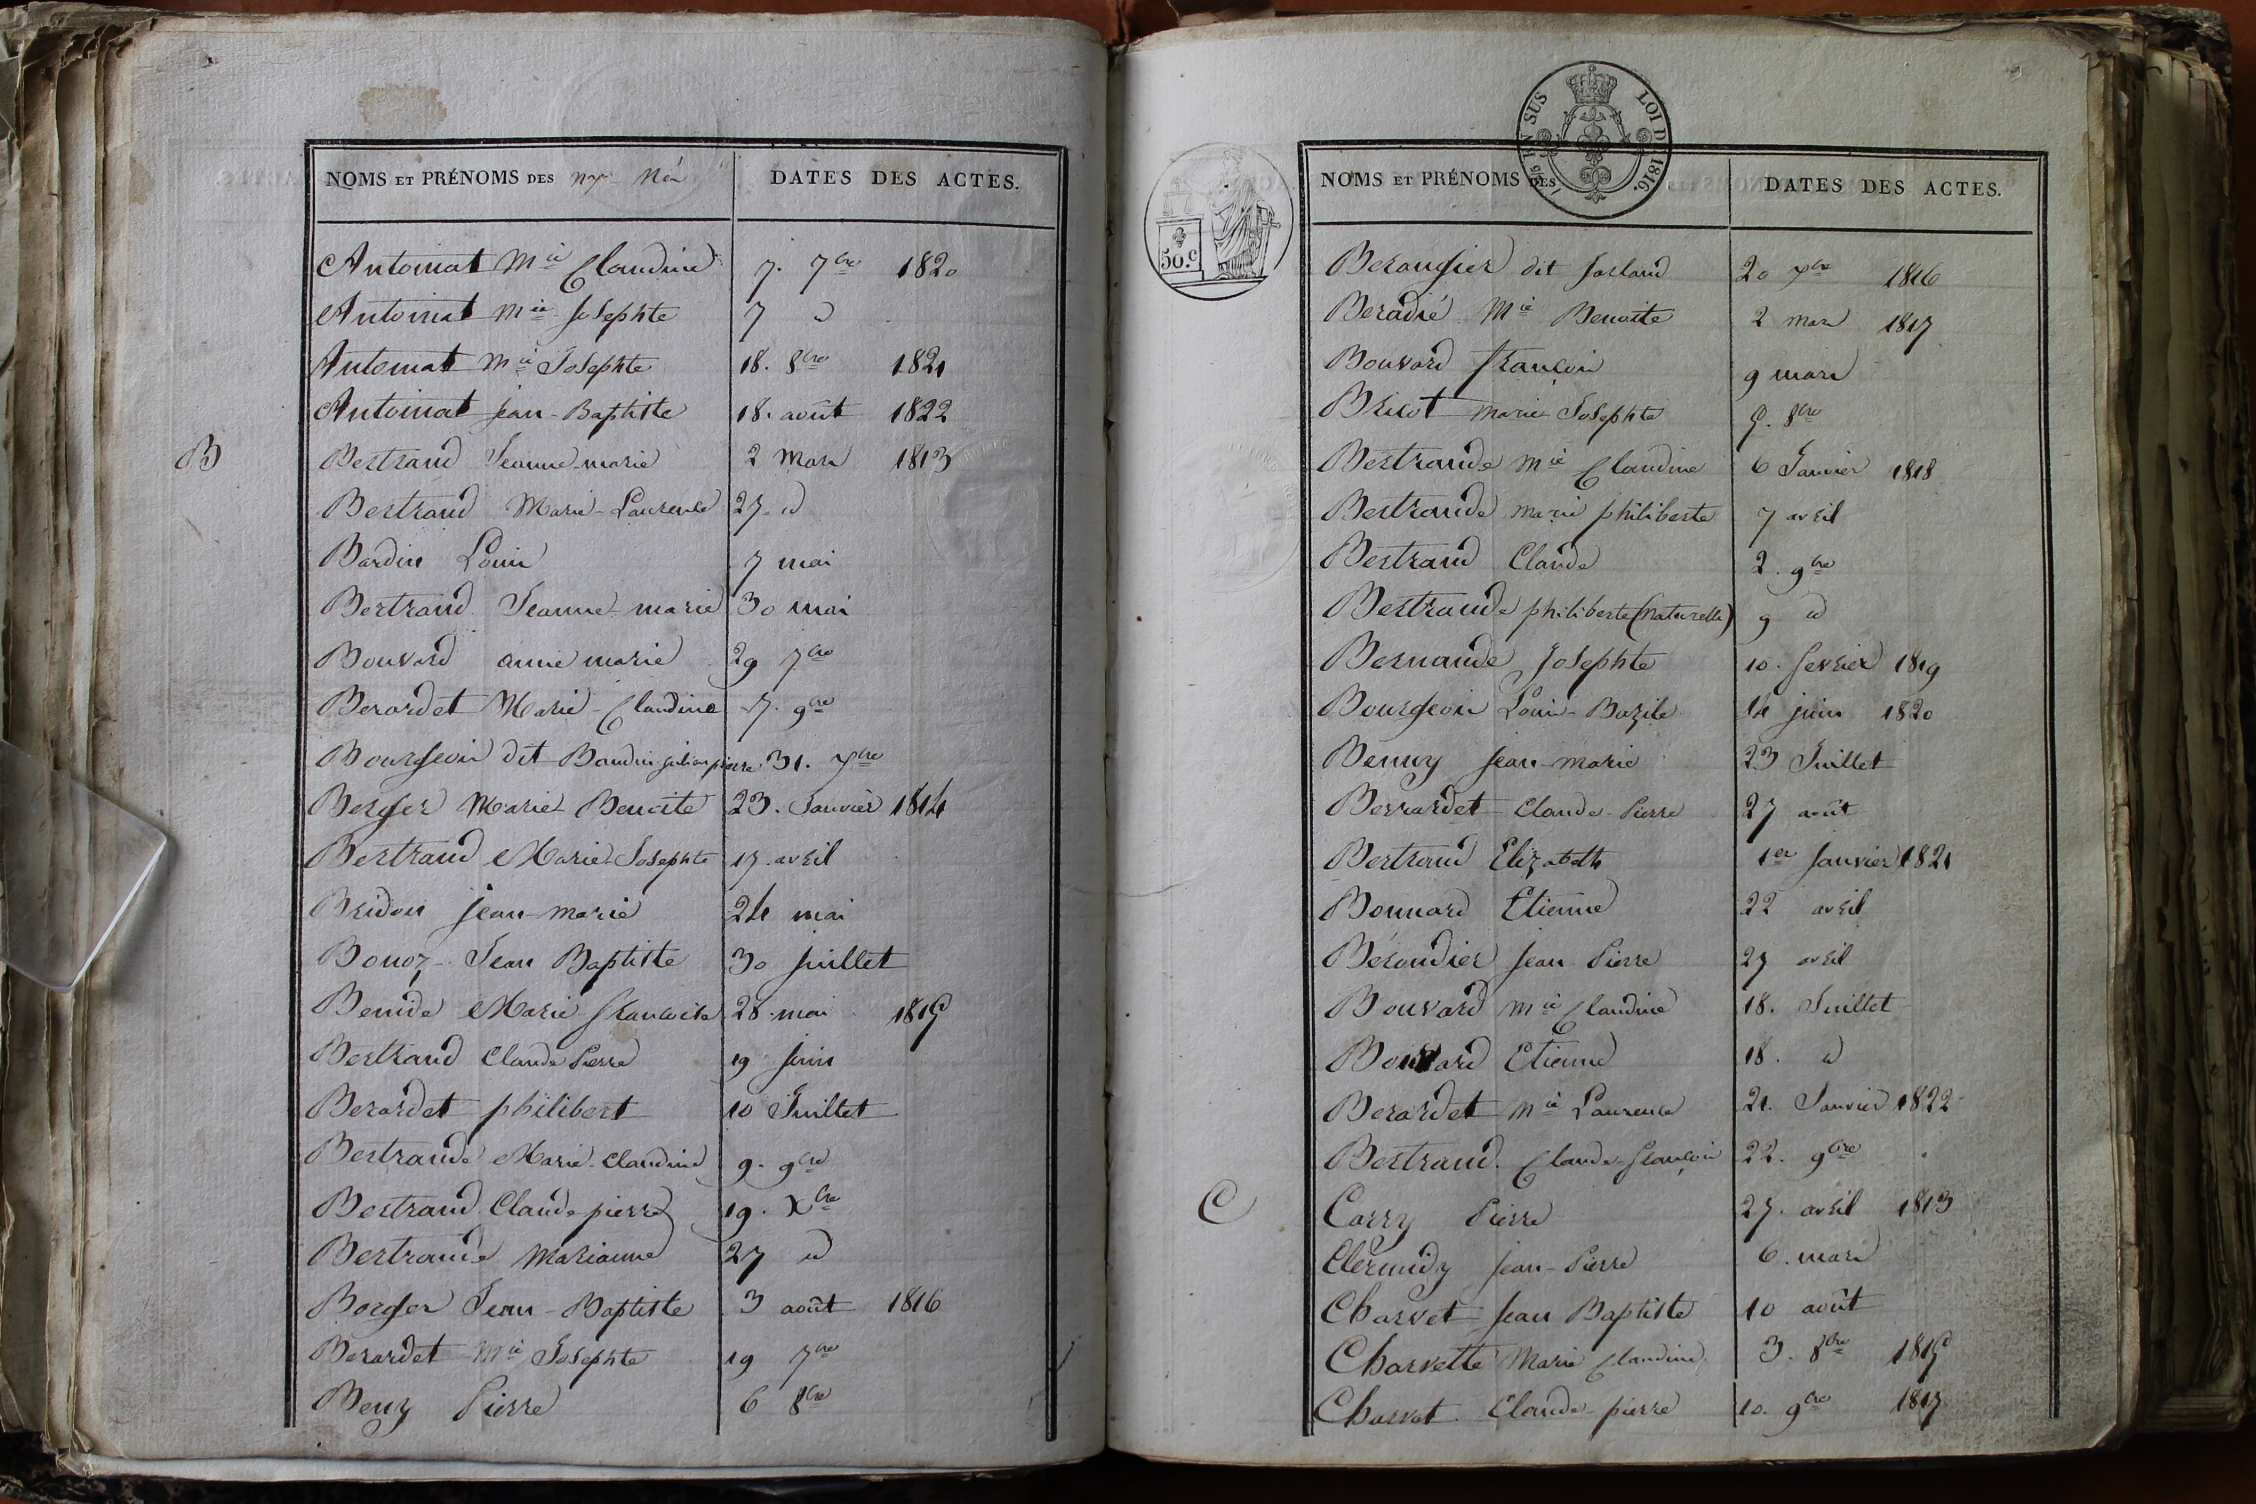 NOMS ET PRÉNOMS DES DATES DES ACTES.
Antoinat Mie Claudine 7. 7bre 1820
Antoinat Mie Josephte 7 d
Antoinat Mie Josephte 18. 8bre 1821
Antoinat jean-Baptiste 18. août 1822
B Bertrand Jeanne-marie 2 Mars 1813
Bertrand Marie-Laurence 27 d
Bardin Louis 7 mai
Bertrand Jeanne-marie 30 mai
Bouvard anne marie 29 7bre
Berardet Marie-Claudine 7. 9bre
Bourgeois dit Baudin julien pierre 31. Xbre
Berger Marie Benoite 23. Janvier 1814
Bertrand Marie-Josephte 17. avril
Bridon jean-marie 24 mai
Bonoz Jean Baptiste 30 juillet
Marie francoise 28. mai 1815
Bertrand Claude Pierre 19 juin
Berardet philibert 10 Juillet
Bertrande Marie-Claudine 9. 9bre
Bertrand Claude pierre 19. Xbre
Bertrande Marianne 27 d
Borger Jean-Baptiste 3 août 1816
Berardet Mie Josephte 19 7bre
Beny Pierre 6 8bre
LOI DE 1816.
EN SUS
50.c
NOMS ET PRÉNOMS DES DATES DES ACTES.
Berangier dit 20 Xbre 1816
Beradié Mie Benoite 2 mars 1817
Bouvard françois 9 mars
Bricot marie Josephte 9. 8bre
Bertrande Mie Claudine 6 Janvier 1818
Bertrande marie philiberte 7 avril
Bertrand Claude 2. 9bre
Bertrande philiberte (naturelle) 9 d
Bernande Josephte 10. fevrier 1819
Bourgeois Louis-Bazile 14 juin 1820
Benny jean-marie 23 Juillet
Berrardet Claude-Pierre 27 août
Bertrand Elizabeth 1er janvier 1821
Bonnard Etienne 22 avril
Béroudier jean Pierre 27 avril
Bouvard Mie Claudine 18. Juillet
Bouvard Etienne 18. d
Berardet Mie Laurence 21. Janvier 1822
Bertrand Claude-françois 22. 9bre
C Carry Pierre 27. avril 1813
Clermidy jean-Pierre 6. mars
Charvet jean Baptiste 10 août
Charvette Marie Claudine 3. 8bre 1815
Charvet Claude-pierre 10. 9bre 1817